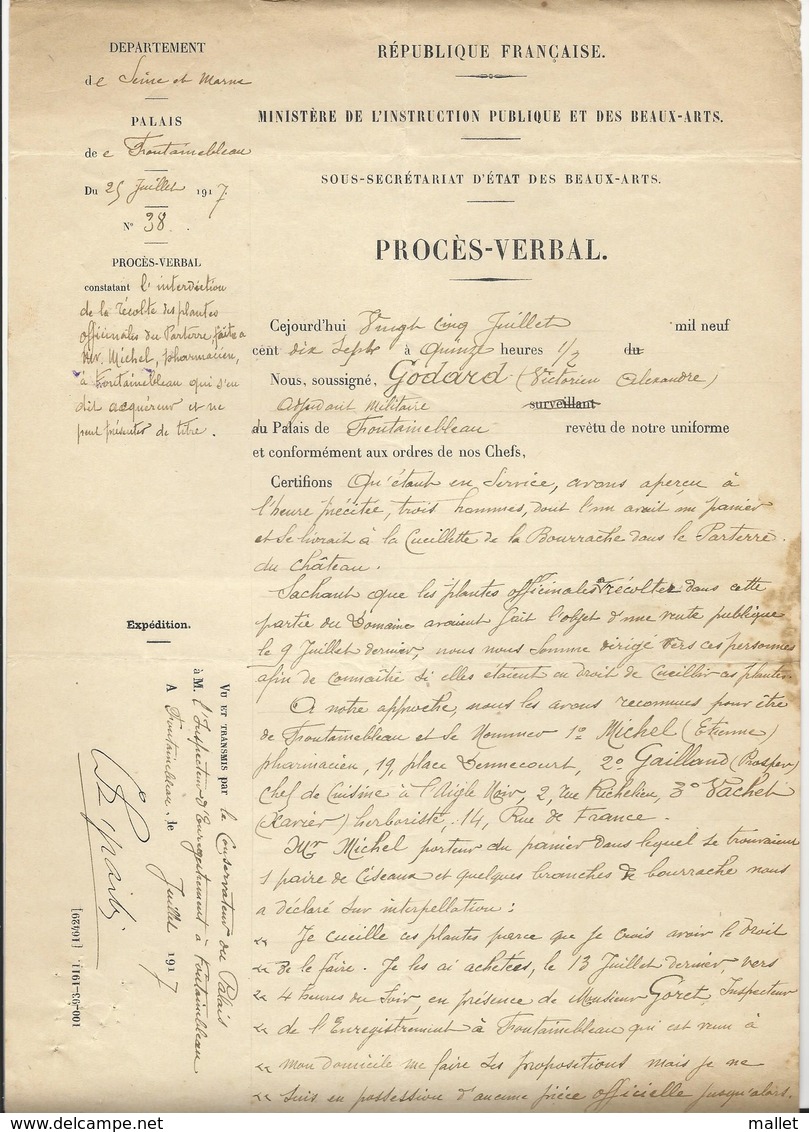 DEPARTEMENT
de Seine et Marne
PALAIS
de Fontainebleau
Du 25 Juillet 1917
N° 38.
PROCÈS-VERBAL
constatant l'interdiction
de la récolte des plantes
officinales du Parterre, faite à
Mr. Michel, pharmacien,
à Fontainebleau qui s'en
dit acquéreur et ne
peut présenter de titre.
RÉPUBLIQUE FRANÇAISE.
MINISTÈRE DE L'INSTRUCTION PUBLIQUE ET DES BEAUX-ARTS.
SOUS-SECRÉTARIAT D'ÉTAT DES BEAUX-ARTS.
PROCÈS-VERBAL.
Cejourd'hui Vingt Cinq Juillet mil neuf
cent dix Sept à Quinze heures 1/2 du
Nous, soussigné, Godard (Victorien Alexandre)
Adjudant Militaire surveillant
au Palais de Fontainebleau revêtu de notre uniforme
et conformément aux ordres de nos Chefs,
Certifions Qu'étant en Service, avons aperçu à
l'heure précitée, trois hommes, dont l'un avait un panier
et se livrait à la Cueillette de la Bourrache dans le Parterre
du Château.
Sachant que les plantes officinales à récolter dans cette
partie du Domaine avaient fait l'objet d'une vente publique
le 9 Juillet dernier, nous nous somme dirigé vers ces personnes
afin de connaître si elles étaient en droit de cueillir ces plantes
A notre approche, nous les avons reconnues pour être
de Fontainebleau et se Nommer 1° Michel (Etienne)
pharmacien, 19, place Dennecourt, 2° Gailland (Prosper)
Chef de Cuisine à l'Aigle Noir, 2, rue Richelieu, 3° Vachet
(Xavier) herboriste, 14, Rue de France.
Mr Michel porteur du panier dans lequel se trouvaient
1 paire de Ciseaux et quelques branches de bourrache nous
a déclaré sur interpellation :
« Je cueille ces plantes parce que je crois avoir le droit
« de le faire. Je les ai achetées, le 13 Juillet dernier, vers
« 4 heures du Soir, en présence de Monsieur Goret, Inspecteur
« de l'Enregistrement à Fontainebleau qui est venu à
« mon domicile me faire des propositions mais je ne
« suis en possession d'aucune pièce officielle jusqu'alors.
Expédition.
VU ET TRANSMIS par le Conservateur du Palais
à M. l'Inspecteur d'Enregistrement à Fontainebleau
A Fontainebleau, le Juillet 1917
100-93-1911. [16429]
mallet